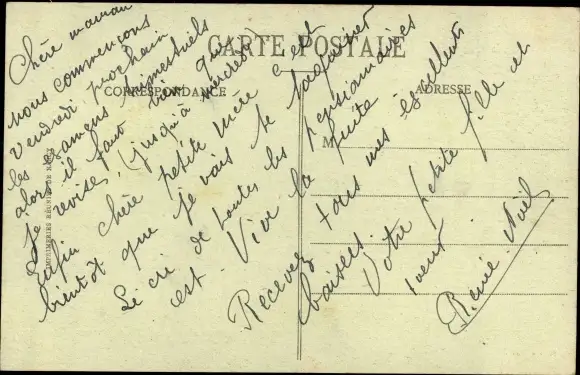 CARTE POSTALE
CORRESPONDANCE
ADRESSE
M
IMPRIMERIES RÉUNIES DE
Chère maman
nous commençons
vendredi prochain
les examens trimestriels
alors il faut bien que
je revise, (jusqu'à mercredi)
enfin chère petite mère c'est
bientôt que je vais te
Le cri de toutes les pensionnaires
est Vive la fuite
Recevez tous mes excellents
baisers. Votre petite fille et
Renée Noël